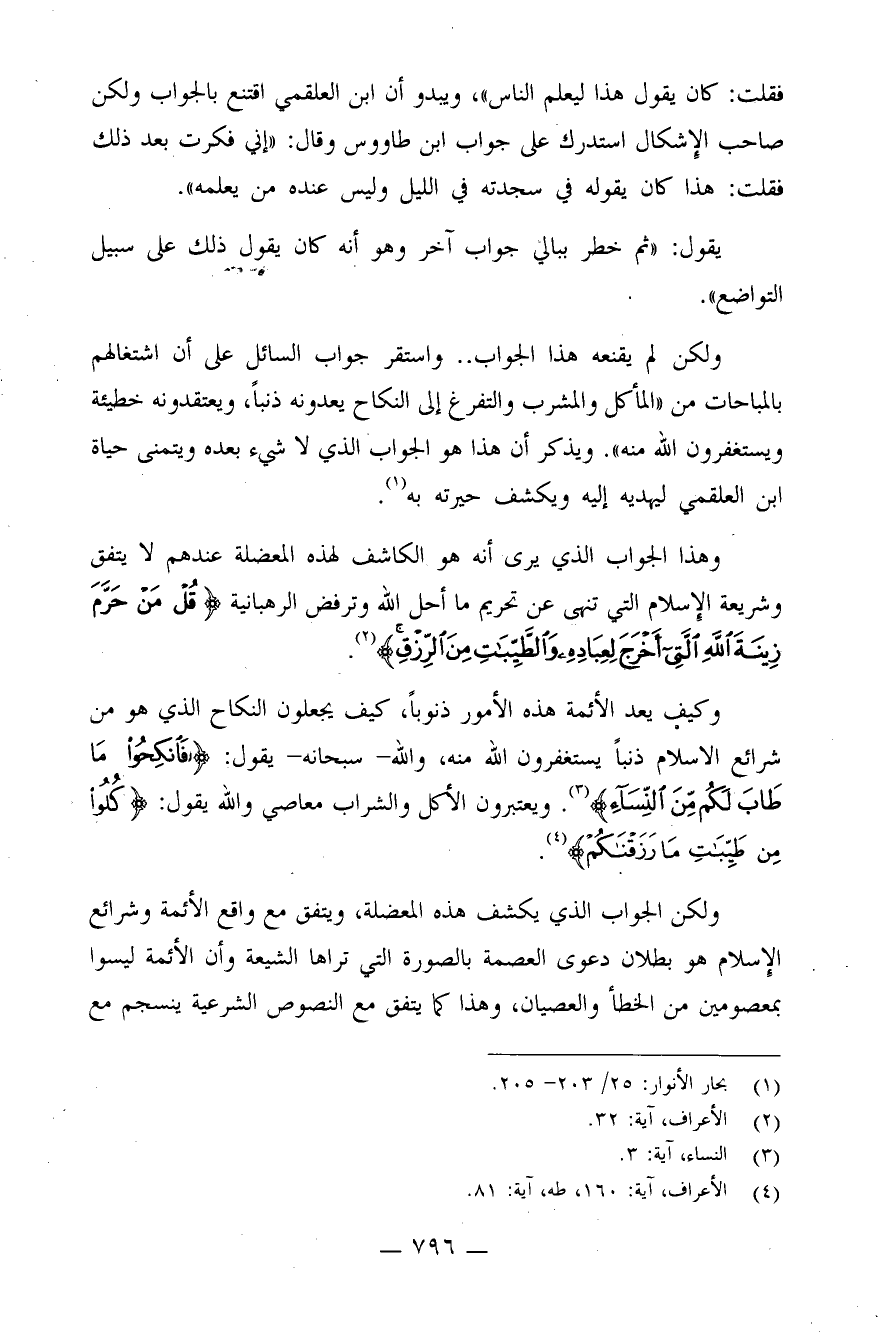 فقلت: كان يقول هذا ليعلم الناس»، ويبدو أن ابن العلقمي اقتنع بالجواب ولكن
صاحب الإشكال استدرك على جواب ابن طاووس وقال: «إني فكرت بعد ذلك
فقلت: هذا كان يقوله في سجدته في الليل وليس عنده من يعلمه».
يقول: «ثم خطر ببالي جواب آخر وهو أنه كان يقول ذلك على سبيل
التواضع».
ولكن لم يقنعه هذا الجواب.. واستقر جواب السائل على أن اشتغالهم
بالمباحات من «المأكل والمشرب والتفرغ إلى النكاح يعدونه ذنباً، ويعتقدونه خطيئة
ويستغفرون الله منه». ويذكر أن هذا هو الجواب الذي لا شيء بعده ويتمنى حياة
ابن العلقمي ليهديه إليه ويكشف حيرته به(١).
وهذا الجواب الذي يرى أنه هو الكاشف لهذه المعضلة عندهم لا يتفق
وشريعة الإسلام التي تنهى عن تحريم ما أحل الله وترفض الرهبانية ﴿قُلْ مَنْ حَرَّمَ
زِينَةَ ٱللَّهِ ٱلَّتِيٓ أَخْرَجَ لِعِبَادِهِۦ وَٱلطَّيِّبَٰتِ مِنَ ٱلرِّزْقِۚ﴾(٢).
وكيف يعد الأئمة هذه الأمور ذنوباً، كيف يجعلون النكاح الذي هو من
شرائع الاسلام ذنباً يستغفرون الله منه، والله– سبحانه– يقول: ﴿فَٱنكِحُوا۟ مَا
طَابَ لَكُم مِّنَ ٱلنِّسَآءِ﴾(٣). ويعتبرون الأكل والشراب معاصي والله يقول: ﴿كُلُوا۟
مِن طَيِّبَٰتِ مَا رَزَقْنَٰكُمْ﴾(٤).
ولكن الجواب الذي يكشف هذه المعضلة، ويتفق مع واقع الأئمة وشرائع
الإسلام هو بطلان دعوى العصمة بالصورة التي تراها الشيعة وأن الأئمة ليسوا
بمعصومين من الخطأ والعصيان، وهذا كما يتفق مع النصوص الشرعية ينسجم مع
(١) بحار الأنوار: ٢٥/ ٢٠٣– ٢٠٥.
(٢) الأعراف، آية: ٣٢.
(٣) النساء، آية: ٣.
(٤) الأعراف، آية: ١٦٠، طه، آية: ٨١.
— ٧٩٦ —